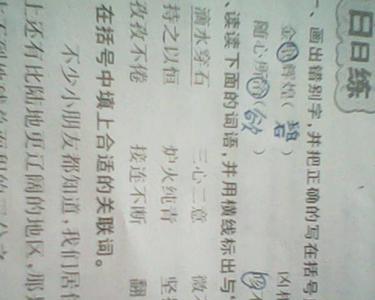 日日练
一、画出错别字,并把正确的写在括号
金辉煌(碧) 凶
随心所(欲)
、读读下面的词语,并用横线标出与
滴水穿石 三心二意 微
持之以恒 炉火纯青 坚
孜孜不倦 接连不断 翻
在括号中填上合适的关联词。
不少小朋友都知道,我们居住
上还有比陆地更辽阔的地区,那